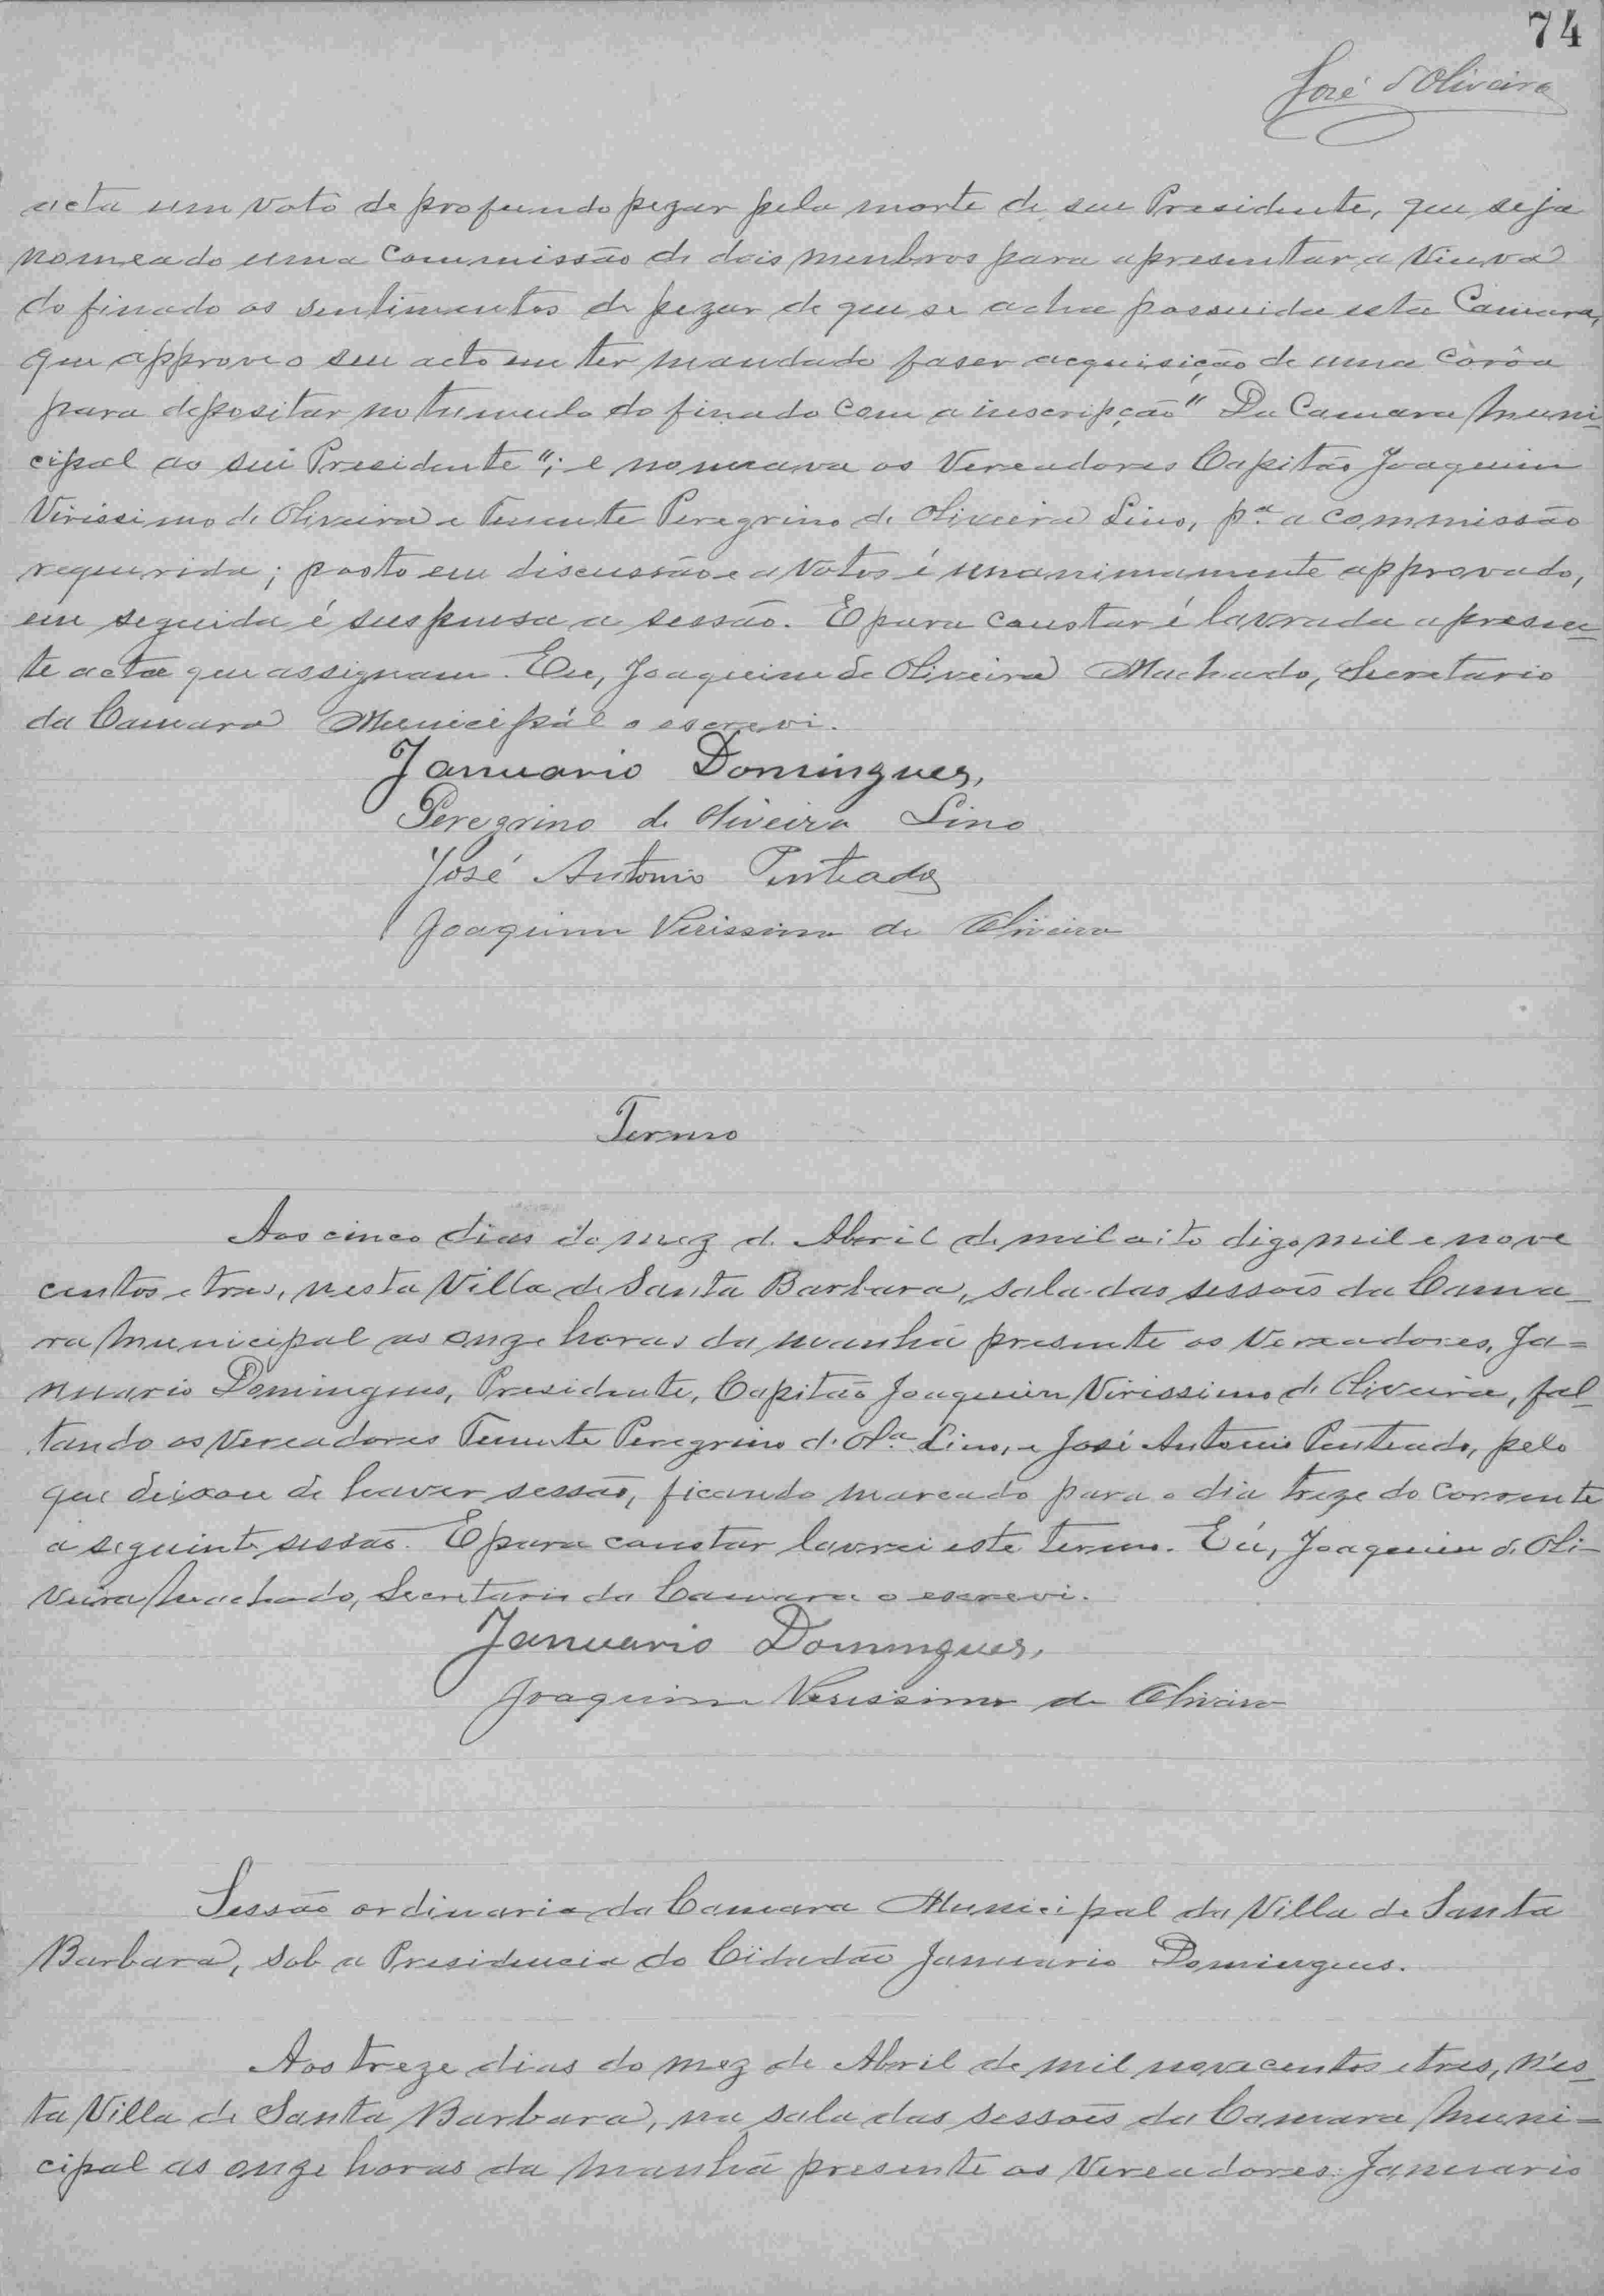 74
José d'Oliveira
acta um voto de profundo pezar pela morte de seu Presidente, que seja
nomeado uma Commissão de dois membros para apresentar a Viuva
do finado os sentimentos de pezar de que se acha possuida esta Camara,
que approve o seu acto em ter mandado faser acquisição de uma corôa
para depositar no tumulo do finado com a inscripção "Da Camara Muni-
cipal ao seu Presidente"; e nomeava os Vereadores Capitão Joaquim
Virissimo de Oliveira e Tenente Peregrino de Oliveira Lino, pª a commissão
requerida; posto em discussão e a votos é unanimamente approvado,
em seguida é suspensa a sessão. E para constar é lavrada a presen-
te acta que assignam. Eu, Joaquim de Oliveira Machado, Secretario
da Camara Municipal o escrevi.
Januario Domingues,
Peregrino de Oliveira Lino
José Antonio Penteado
Joaquim Virissimo de Oliveira
Termo
Aos cinco dias do mez de Abril de mil oito digo mil e nove
centos e tres, nesta Villa de Santa Barbara, sala das sessoẽs da Cama-
ra Municipal as onze horas da manhã presente os Vereadores, Ja=
nuario Domingues, Presidente, Capitão Joaquim Virissimo de Oliveira, fal-
tando os Vereadores Tenente Peregrino d'Olª Lino, e José Antonio Penteado, pelo
que deixou de haver sessão, ficando marcado para o dia treze do corrente
a seguinte sessão. E para constar lavrei este termo. Eú, Joaquim de Oli-
veira Machado, Secretario da Camara o escrevi.
Januario Domingues,
Joaquim Verissimo de Oliveira
Sessão ordinaria da Camara Municipal da Villa de Santa
Barbara, sob a Presidencia do Cidadão Januario Domingues.
Aos treze dias do mez de Abril de mil novecentos e tres, n'es-
ta Villa de Santa Barbara, na sala das sessoẽs da Camara Muni=
cipal as onze horas da manhã presente os Vereadores: Januario